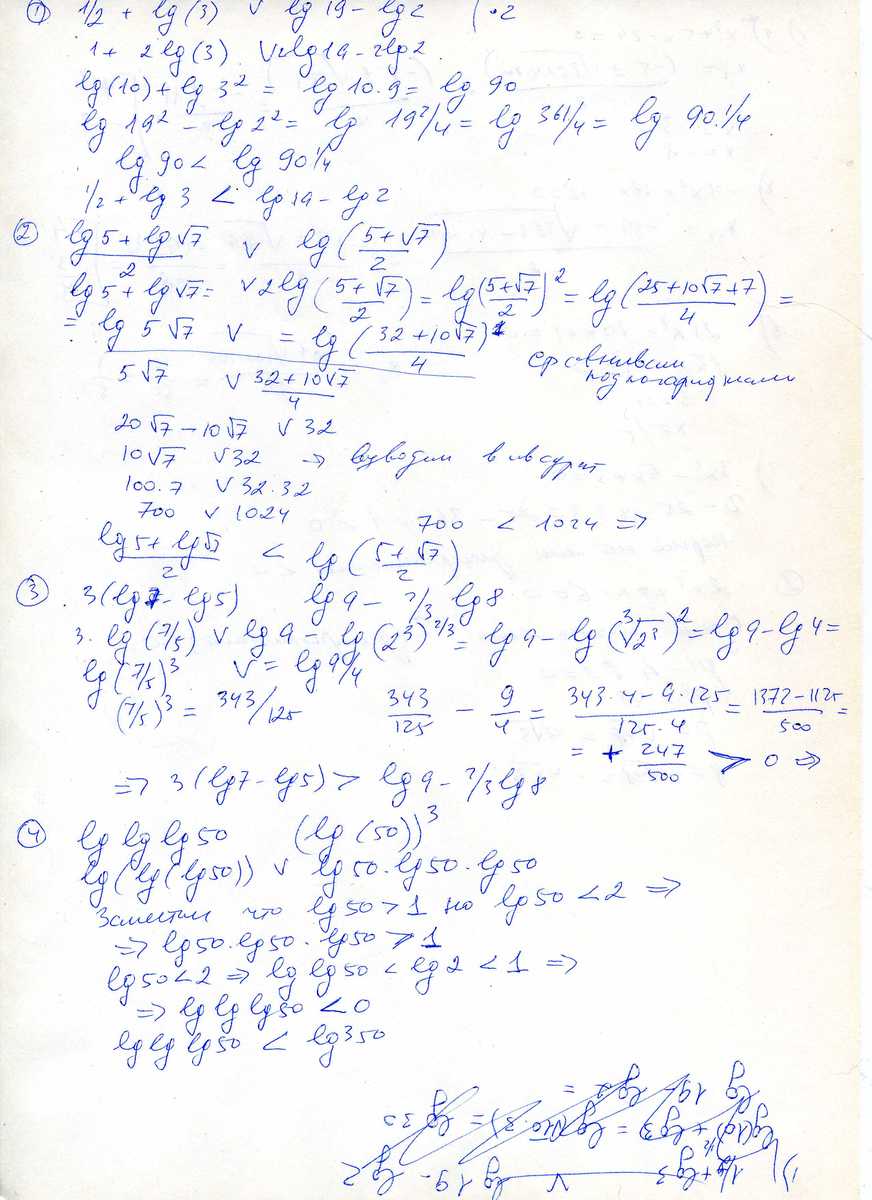 ① 1/2 + lg(3) ∨ lg 19 - lg2 | ·2
1 + 2lg(3) ∨ 2lg19 - 2lg2
lg(10) + lg 3² = lg 10·9 = lg 90
lg 19² - lg 2² = lg 19²/4 = lg 361/4 = lg 90 1/4
lg 90 < lg 90 1/4
1/2 + lg 3 < lg 19 - lg 2
② (lg 5 + lg √7)/2 ∨ lg((5+√7)/2)
lg 5 + lg √7 = ∨ 2lg((5+√7)/2) = lg((5+√7)/2)² = lg((25+10√7+7)/4) =
= lg 5√7 ∨ = lg((32+10√7)/4)
5√7 ∨ (32+10√7)/4 сравниваем
под логарифмами
20√7 - 10√7 ∨ 32
10√7 ∨ 32 → возводим в квадрат
100·7 ∨ 32·32
700 ∨ 1024 700 < 1024 ⇒
(lg 5 + lg √7)/2 < lg((5+√7)/2)
③ 3(lg7 - lg5) lg 9 - 2/3 lg8
3·lg(7/5) ∨ lg 9 - lg(2³)^2/3 = lg 9 - lg(³√2³)² = lg 9 - lg 4 =
lg(7/5)³ ∨ = lg 9/4
(7/5)³ = 343/125 343/125 - 9/4 = (343·4 - 9·125)/(125·4) = (1372 - 1125)/500 =
= + 247/500 > 0 ⇒
⇒ 3(lg7 - lg5) > lg 9 - 2/3 lg 8
④ lg lg lg 50 (lg(50))³
lg(lg(lg50)) ∨ lg50·lg50·lg50
Заметим что lg50 > 1 но lg50 < 2 ⇒
⇒ lg50·lg50·lg50 > 1
lg50 < 2 ⇒ lg lg50 < lg 2 < 1 ⇒
⇒ lg lg lg50 < 0
lg lg lg50 < lg³50
1) 1/2 + lg3 ∨ lg 19 - lg 2